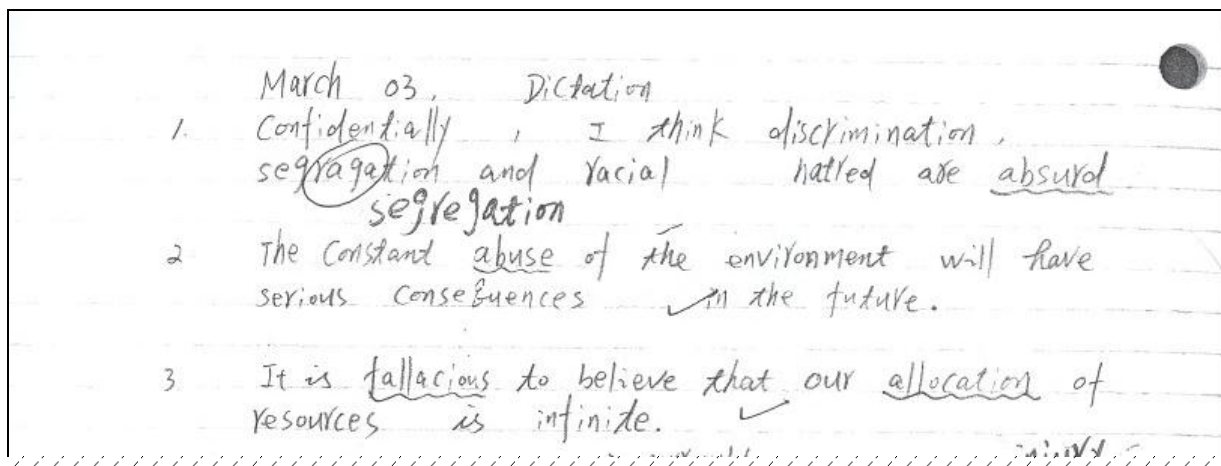 March 03. Dictation
1. Confidentially, I think discrimination,
segragation and racial hatred are absurd.
segregation
2 The constant abuse of the environment will have
serious consequences in the future.
3 It is fallacious to believe that our allocation of
resources is infinite.